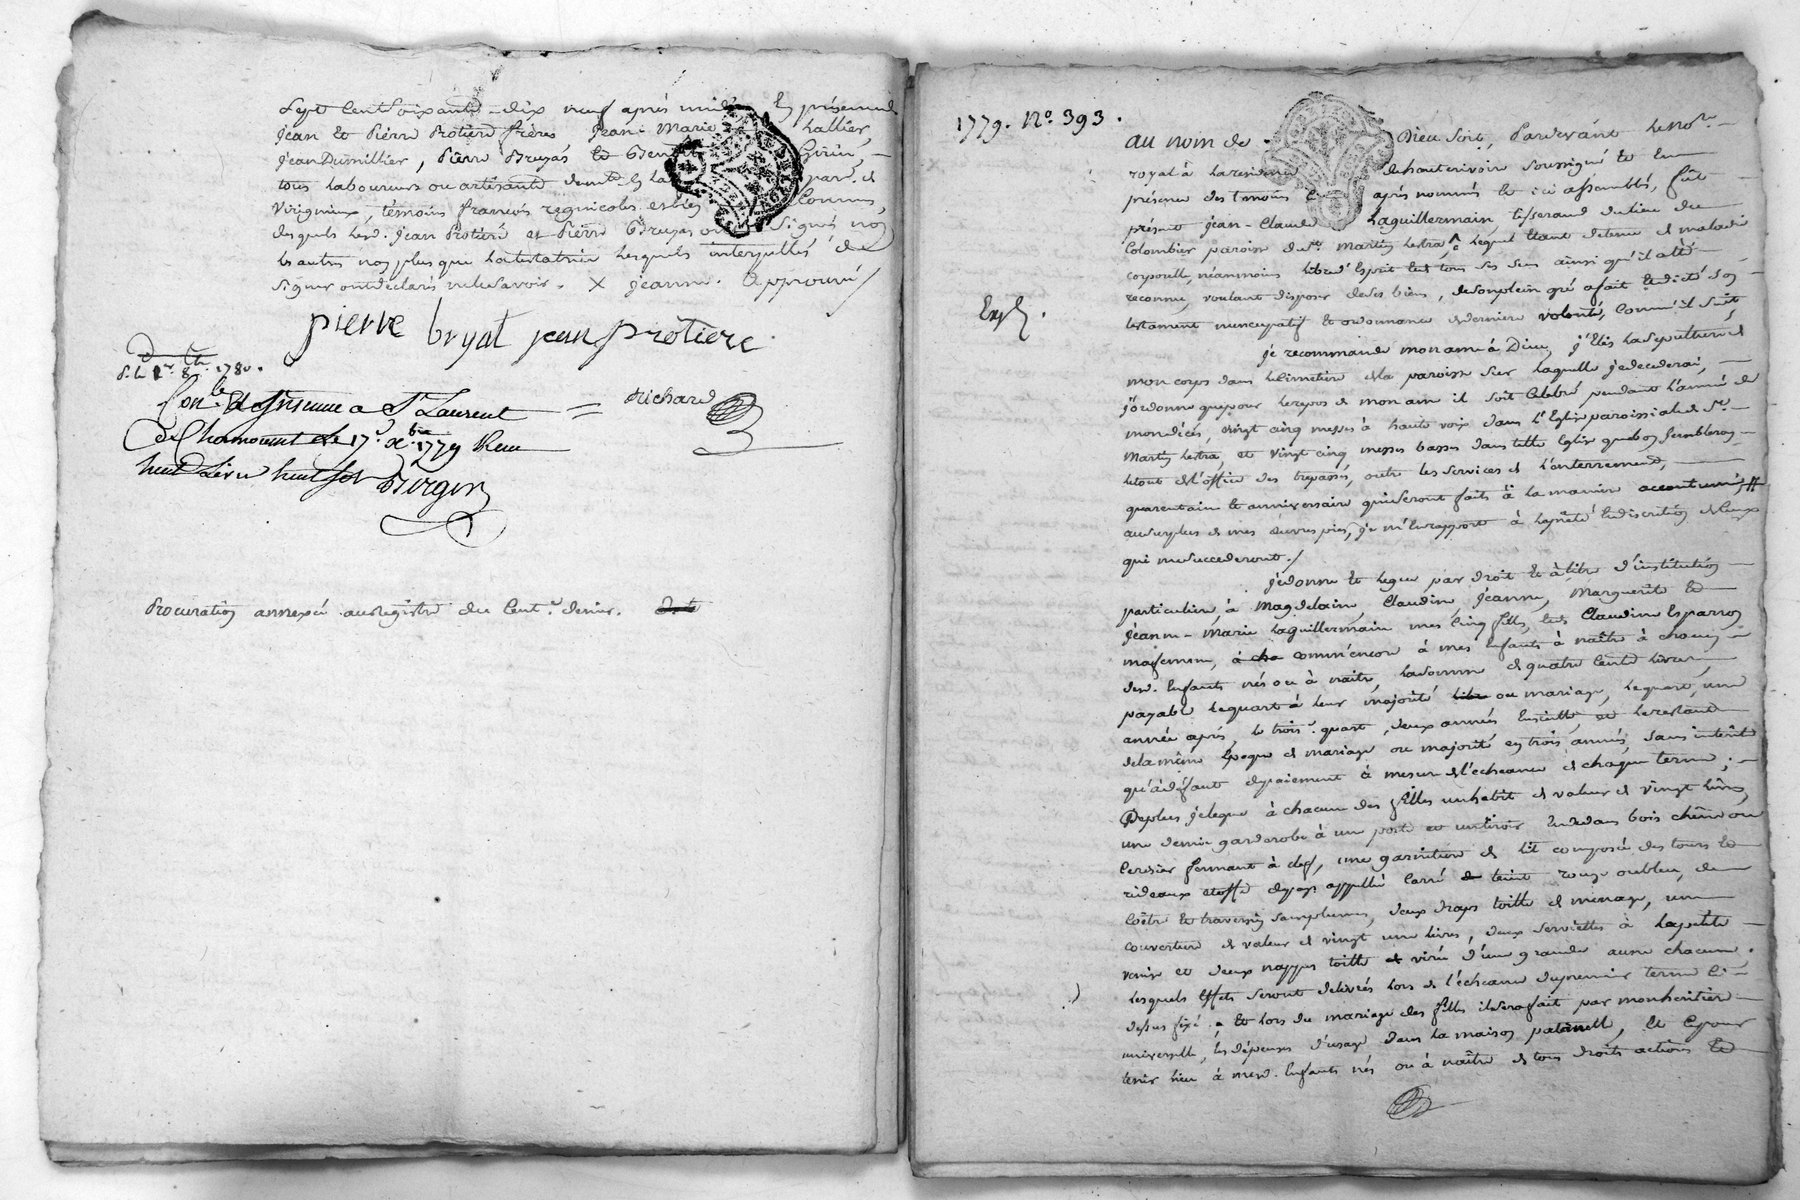 Sept Cent Soixante dix neuf après midi En présence de
Jean Et Pierre Protiere frères Jean-Marie hallier,
Jean Dumillier, Pierre Bruyas Et Benoit Guerin,
tous laboureurs ou artisants demts En la par. de
Virignieux, témoins françois regnicoles
desquels lesd. Jean Protiere et Pierre Bruyas ont Signés non
les autres non plus que latestatrice lesquels interpellés de
signer ont déclarés ne le Savoir. X jeanne. approuvé /
pierre bryat jean protiere
D. le 1er 8bre 1780.
Conlé Et Insinué a St Laurent
De Chamousset Le 17e Xbre 1779 Reçu
huit Livres huit sols Berger
Richard
Procuration annexée au Registre du Cent.e denier.
1779. No. 393.
Exp.
au nom de Dieu Soit, Pardevant le Nore
royal à la residence de hauterivoire Soussigné Et En
présence des témoins après nommés Et ici assemblés, fût
présent Jean-Claude Laguillermain tisserand du lieu du
Colombier paroisse de St. Martin Lestra, lequel Etant detenu de maladie
corporelle, néanmoins libre d'Esprit Et de tous ses sens ainsi qu'il a été
reconnu, voulant disposer de ses biens, de son plein gré a fait Et dicté Son
testament nuncupatif Et ordonnance de derniere volonté, Comme il Suit
je recommande mon ame à Dieu, j'Elis la Sepulture de
mon corps dans le Cimetiere de la paroisse Sur laquelle je decederai,
j'ordonne que pour le repos de mon ame il soit Celebré pendant l'année de
mon décès, vingt cinq messes à haute voix dans l'Eglise paroissiale de St.
Martin Lestra, et vingt cinq messes basses dans telle Eglise que bon Semblera,
le tout de l'office des trepassés, outre les services de l'enterrement,
quarantaine Et anniversaire qui seront faits à la maniere accoutumée,
au surplus de mes œuvres pies, je m'En rapporte à la piété Et discretion de Ceux
qui me succederont. /
je donne Et legue par droit Et à titre d'institution
particuliere, à Magdelaine, Claudine, Jeanne, Marguerite Et
Jeanne-Marie Laguillermain mes Cinq filles, Et de Claudine Esparron
ma femme, à cha comm'encore à mes Enfants à naître à chacun
desd. Enfants nés ou à naître, la somme de quatre Cents livres,
payable le quart à leur majorité ou mariage, le quart, une
année après, le trois.e quart, deux années Ensuite, et le restant
de la même Epoque de mariage ou majorité en trois années, sans intérêt
qu'à défaut de paiement à mesure de l'echeance de chaque terme;
De plus je legue à chacune des filles un habit de valeur de vingt livres,
une demie garderobe à une porte et un tiroir En dedans bois chêne ou
Cerisier fermant à clef, une garniture de lit composée des tours Et
rideaux étoffe de pays appellée Carré teint rouge ou bleu, de
Coetre Et traversin Sans plumes, deux draps toille de menage, une
couverture de valeur de vingt une livres, deux serviettes à la petite
venise et deux nappes toille d'une grande aune chacune.
lesquels Effets seront delivrés lors de l'écheance du premier terme Ci-
dessus fixé; Et lors du mariage des filles il sera fait par mon héritier
universelle, les dépenses d'usage dans la maison paternelle, Et Ce pour
tenir lieu à mesd. Enfants nés ou à naître de tous droits actions Et